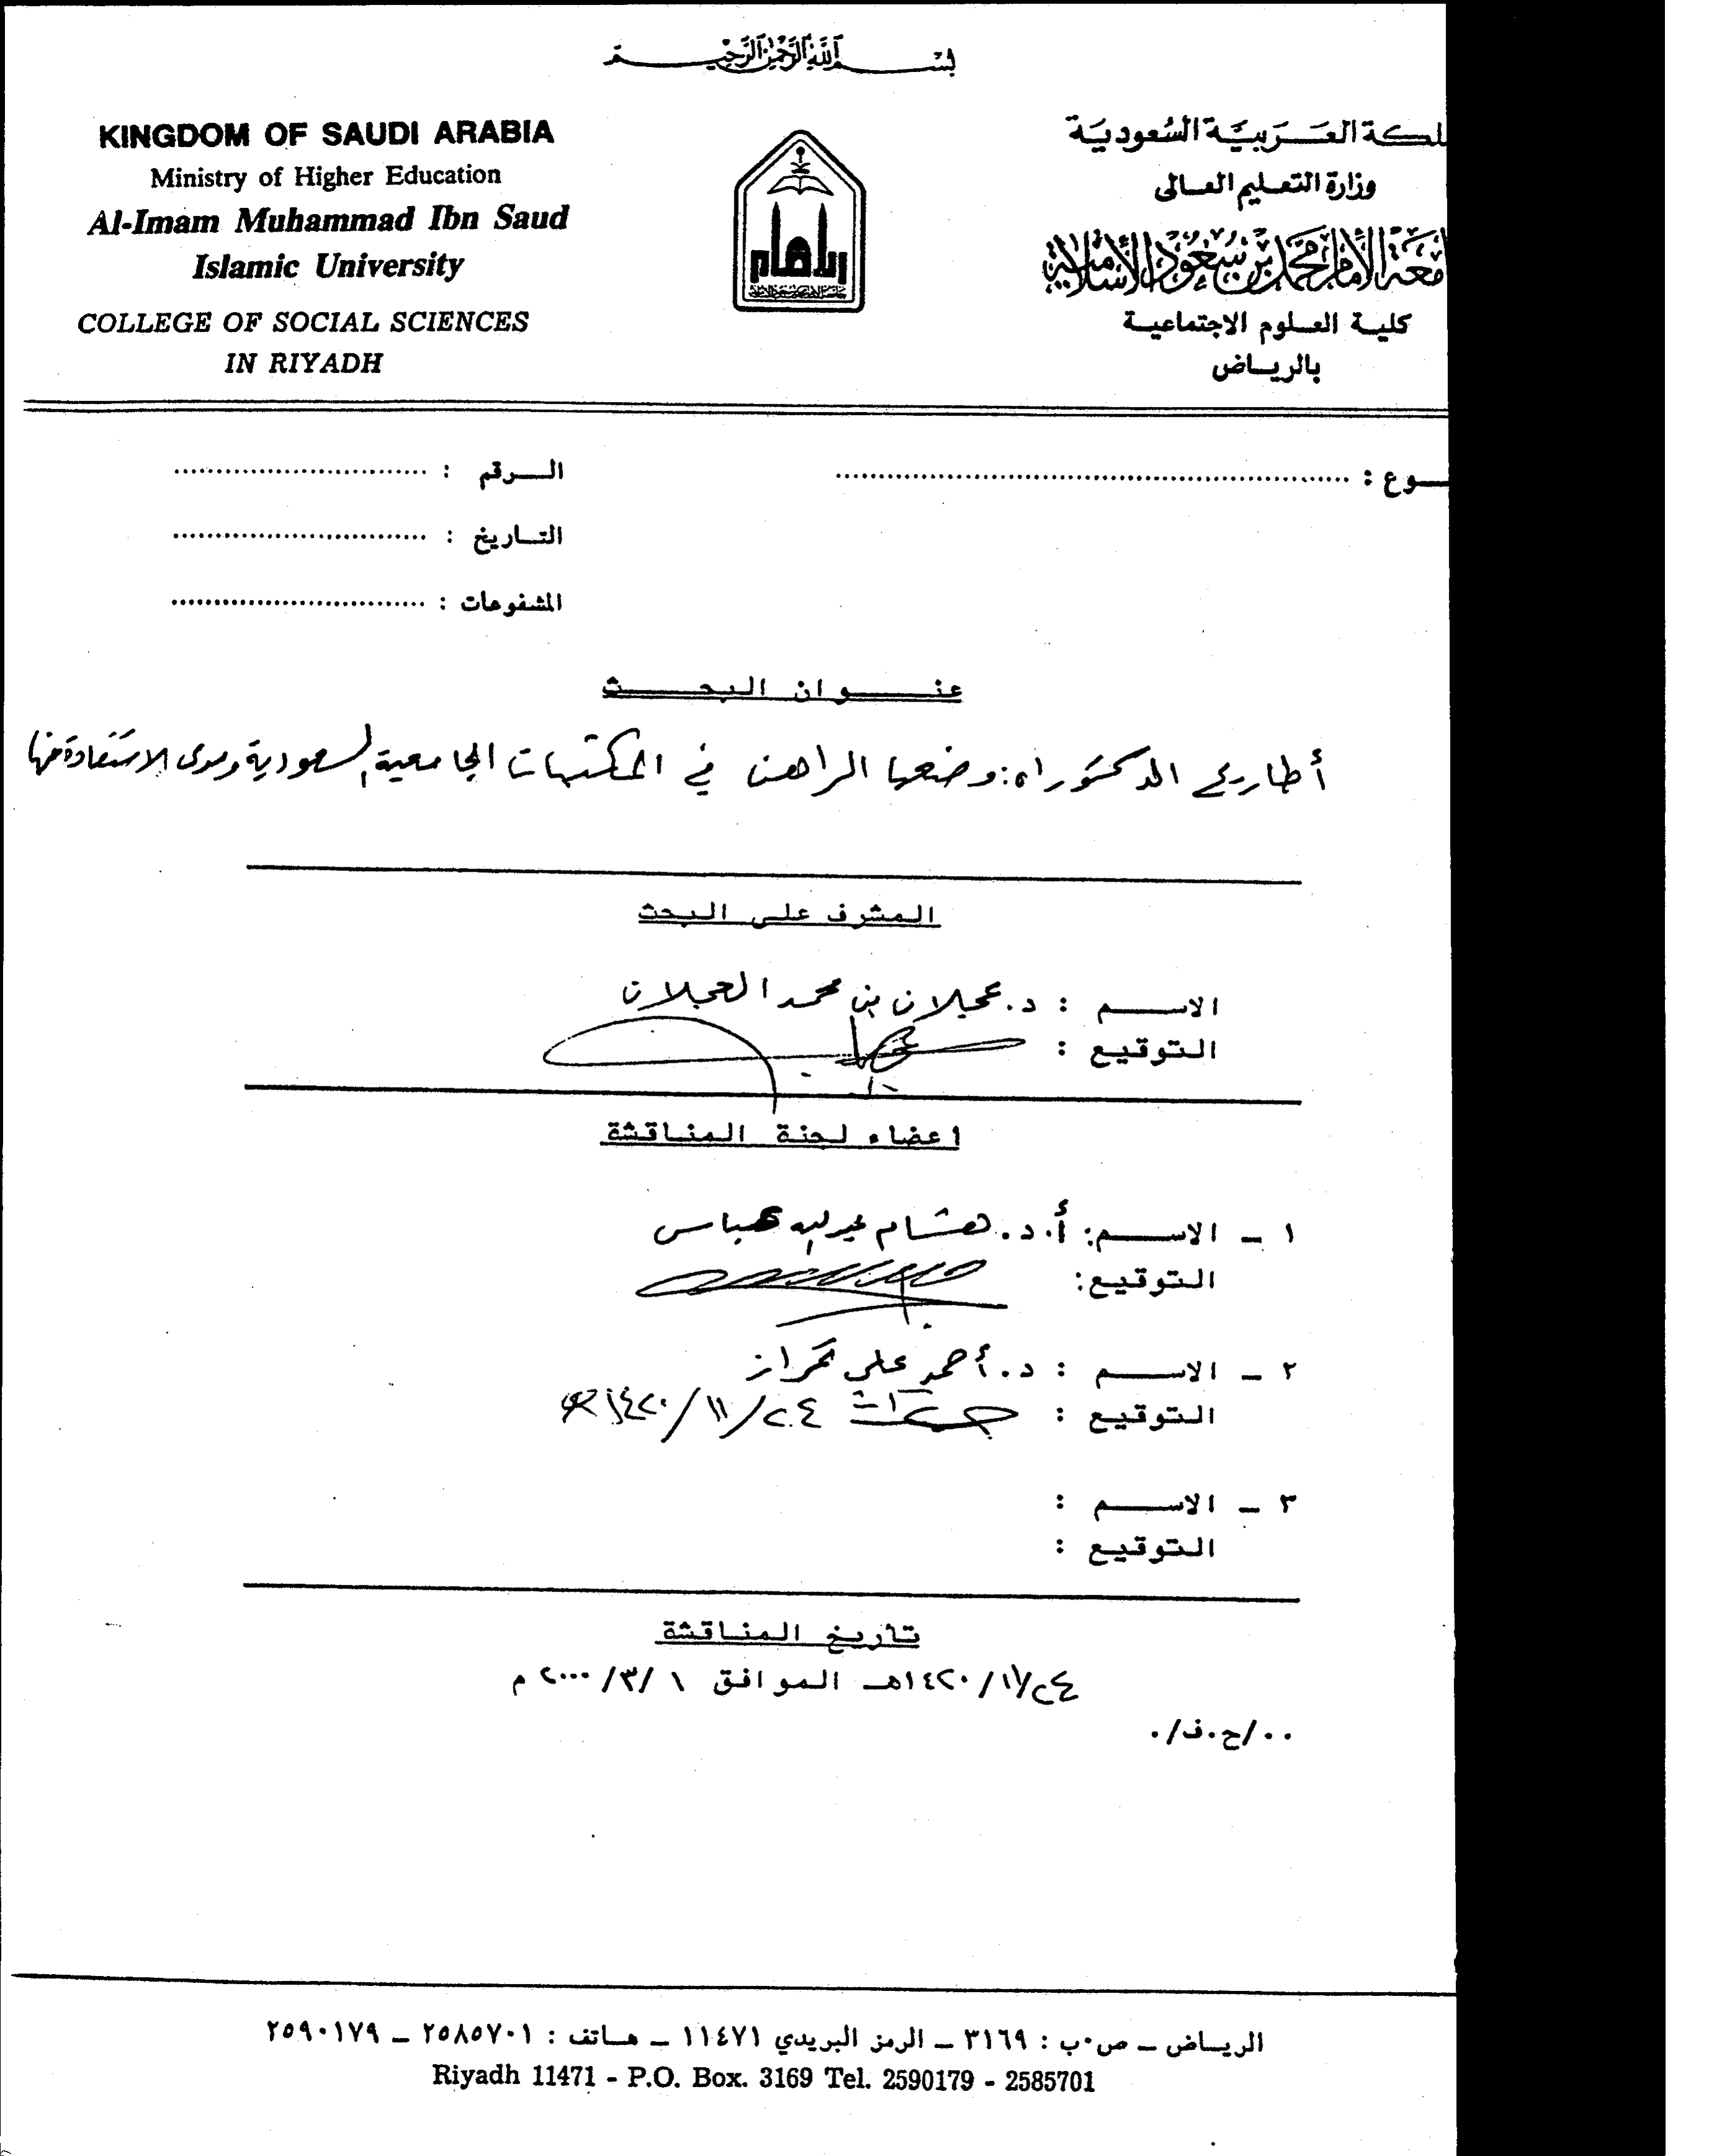 بسم الله الرحمن الرحيم
KINGDOM OF SAUDI ARABIA
Ministry of Higher Education
Al-Imam Muhammad Ibn Saud
Islamic University
COLLEGE OF SOCIAL SCIENCES
IN RIYADH
لكة العربية السعودية
وزارة التعليم العالى
معة الإمام محمد بن سعود الإسلامية
كلية العلوم الاجتماعية
بالرياض
وع : ..............................
الرقم : ..............................
التاريخ : ..............................
المشفوعات : ..............................
عنوان البحث
أطاريح الدكتوراه: وضعها الراهن في المكتبات الجامعية السعودية ومدى الاستفادة منها
المشرف على البحث
الاسم : د. عجلان بن محمد العجلان
التوقيع :
اعضاء لجنة المناقشة
١ - الاسم : أ.د. هشام عبدالله عباس
التوقيع:
٢ - الاسم : د. أحمد علي تمراز
التوقيع : ٢٤/١١/١٤٢٠هـ
٣ - الاسم :
التوقيع :
تاريخ المناقشة
٢٤/١١/١٤٢٠هـ الموافق ١/٣/٢٠٠٠ م
٠٠/ح.ف/.
الرياض - ص.ب : ٣١٦٩ - الرمز البريدي ١١٤٧١ - هاتف : ٢٥٨٥٧٠١ - ٢٥٩٠١٧٩
Riyadh 11471 - P.O. Box. 3169 Tel. 2590179 - 2585701